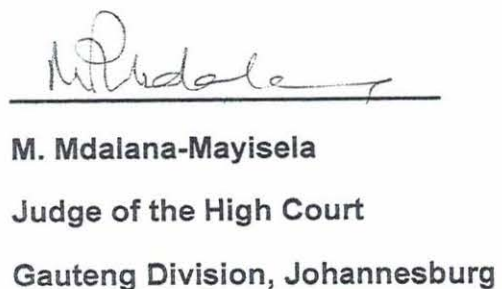 M. Mdalana-Mayisela
Judge of the High Court
Gauteng Division, Johannesburg